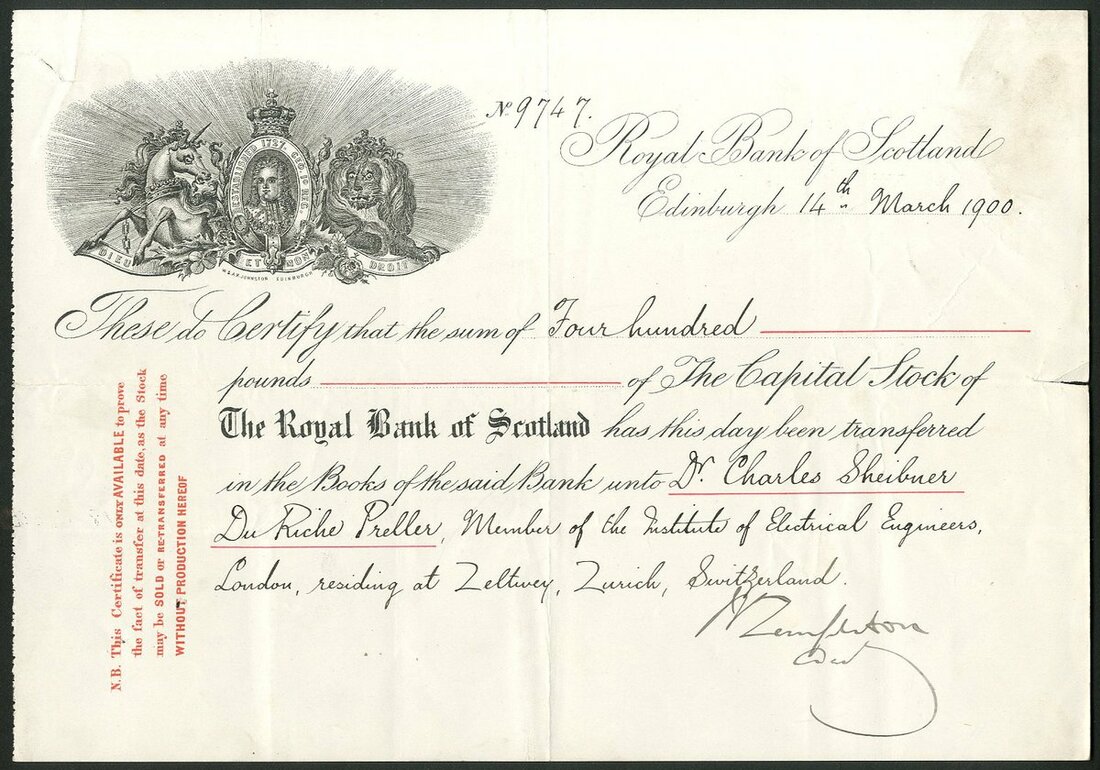 Nº 9747.
Royal Bank of Scotland
Edinburgh 14th March 1900.
ESTABLISHED 1727. GEO. Iº REG.
DIEU ET MON DROIT
W. & A.K. JOHNSTON EDINBURGH
These do Certify that the sum of Four hundred
pounds of The Capital Stock of
The Royal Bank of Scotland has this day been transferred
in the Books of the said Bank unto Dr. Charles Sheibner
Du Riche Preller, Member of the Institute of Electrical Engineers,
London, residing at Zeltwey, Zurich, Switzerland.
N.B. This Certificate is ONLY AVAILABLE to prove
the fact of transfer at this date, as the Stock
may be SOLD OR RE-TRANSFERRED at any time
WITHOUT PRODUCTION HEREOF